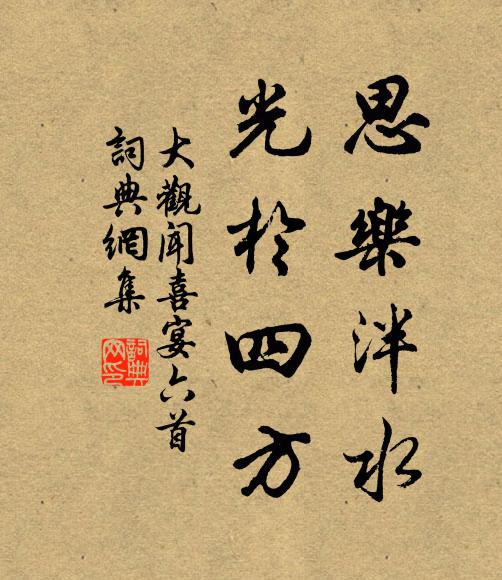 思樂泮水
光於四方
大觀聞喜宴六首
詞典網集
詞典網印